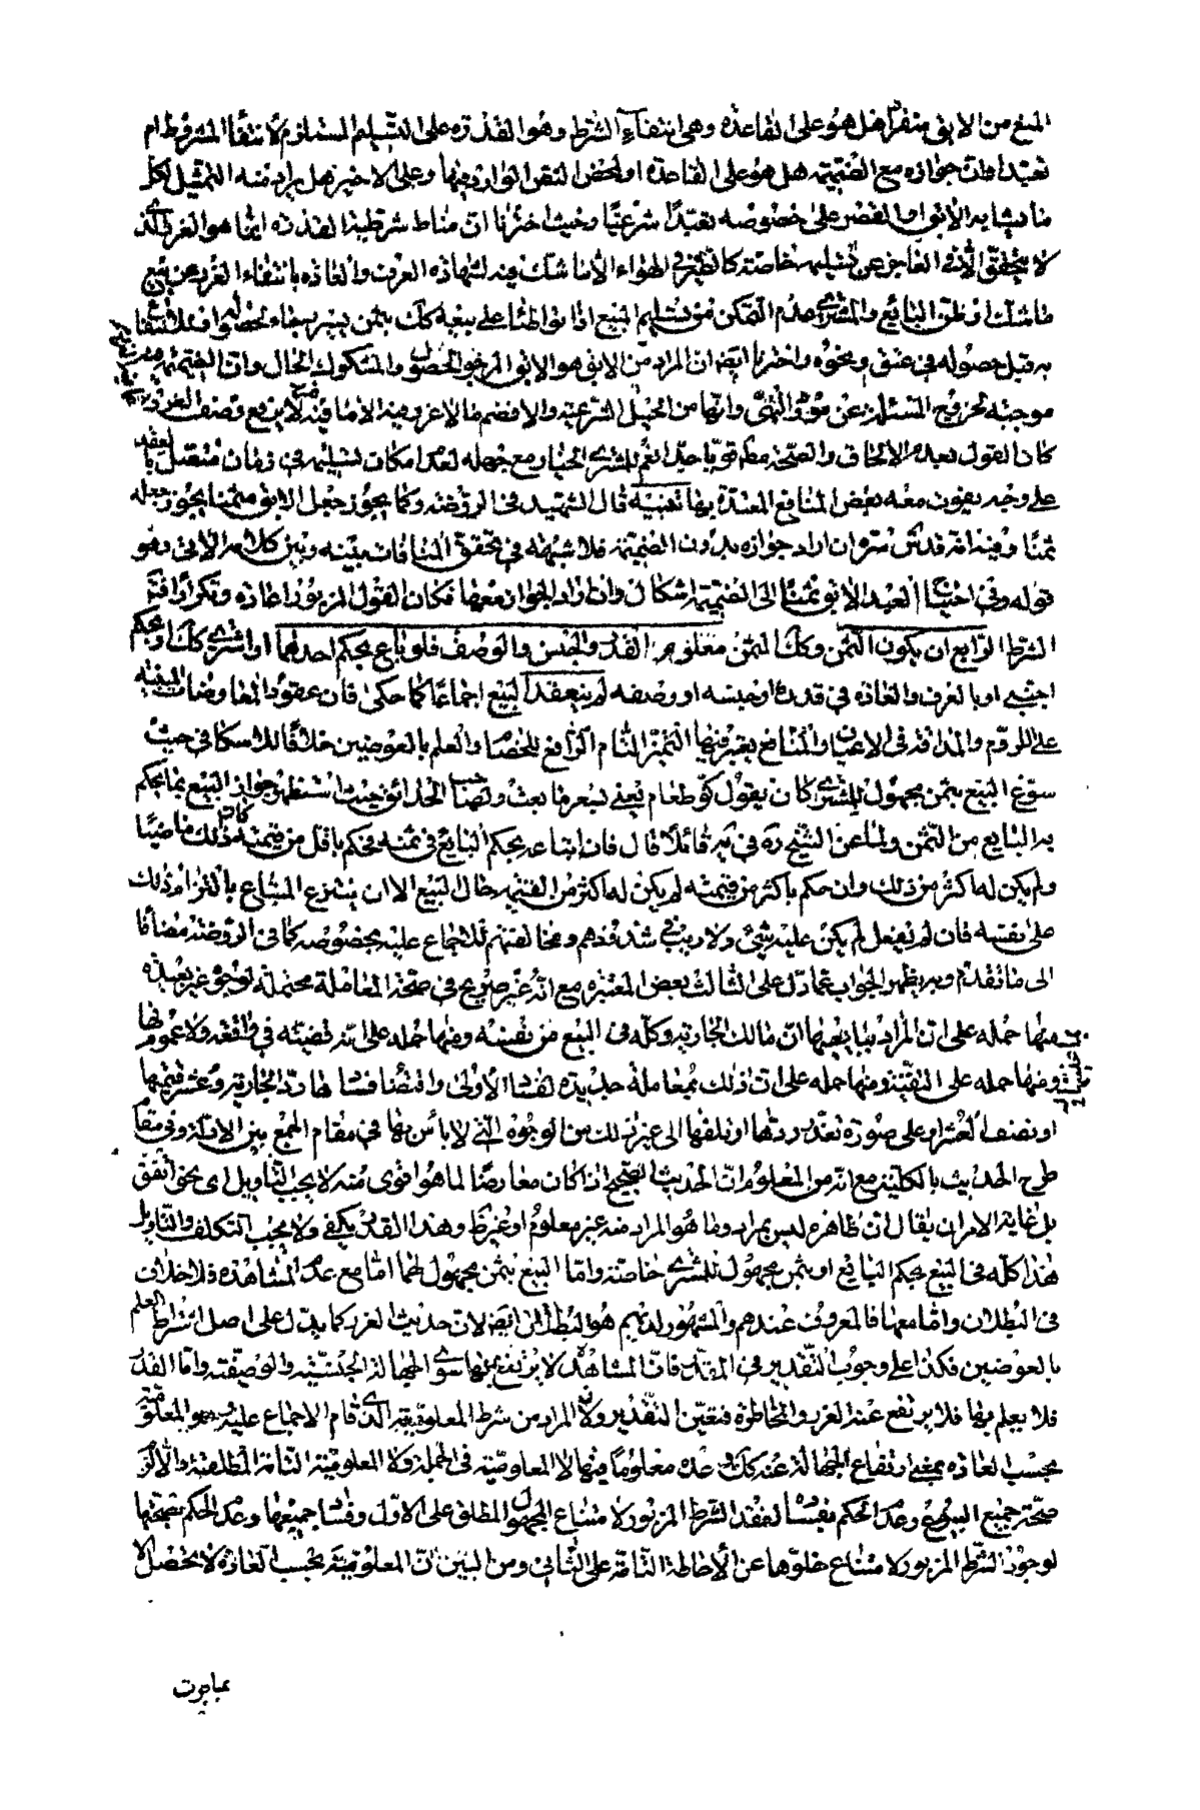 المنع من الابق منفردا هل هو على القاعدة وهي انتفاء الشرط وهو القدرة على التسليم المستلزم لانتفاء المشروط ام
تعبد او ان جوازه مع الضميمة هل هو على القاعدة او لمحض النص الوارد فيها وعلى الاخير هل يراد منه التمثيل لكل
ما يشابه الابق او القصر على خصوصه تعبدا شرعيا وحيث اخترنا ان مناط شرطية القدرة انما هو الغرر الذي
لا يتحقق الا في العاجز عن تسليمه خاصة كالطير في الهواء لا ما شك فيه لشهادة العرف والعادة بانتفاء الغرر عن بيع
ما شك او ظن البايع والمشتري عدم التمكن من تسليم المبيع اذا تواطئا على بيعه كك بثمن يسير رجاء لحصوله او للانتفاع
به قبل حصوله في عتق ونحوه واخترنا ايضا ان المراد من الابق هو الابق المرجو الحصول والمشكوك الحال وان الضميمة
موجبة لخروج المسئلة عن مورد النهي وانها من الحيل الشرعية والا فضم ما لا غرر فيه الا ما فيه لا يرفع وصف الغرر
كان القول بعدم الالحاق والصحة مط قويا جدا نعم للمشتري الخيار مع جهله لعدم امكان تسليمه في زمان متصل بالعقد
على وجه يفوت معه بعض المنافع المعتدة بها تنبيه قال الشهيد في الروضة وكما يجوز جعل الابق مثمنا يجوز جعله
ثمنا وفيه انه قدس سره ان اراد جوازه بدون الضميمة فلا شبهة في تحقق المنافات بينه وبين كلامه الاتي وهو
قوله وفي احتياج العبد الابق ثمنا الى الضميمة اشكال وان اراد الجواز معها فكان القول المزبور اعادة وتكرارا فتـ
الشرط الرابع ان يكون الثمن وكك المثمن معلوم القدر والجنس والوصف فلو باع بحكم احدهما او اشترى كك او بحكم
اجنبي او بالعرف والعادة في قدره او جنسه او وصفه لم ينعقد البيع اجماعا كما حكى فان عقود المعاوضات المبنية
على اللزوم والمداقة في الاعيان والمنافع يعتبر فيها التميز التام الرافع للخصام والعلم بالعوضين خلافا للاسكافي حيث
سوغ البيع بثمن مجهول للمشتري كان يقول كر طعام يعني بسعر ما بعت ولصاحب الحدائق حيث استظهر جواز البيع بما يحكم
به البايع من الثمن ولما عن الشيخ ره في يه قائلا قال فان ابتاعه بحكم البايع في ثمنه فحكم باقل من قيمته كان ذلك ماضيا
ولم يكن له اكثر من ذلك وان حكم باكثر من قيمته لم يكن له اكثر من القيمة حال البيع الا ان يتبرع المبتاع بالتزام ذلك
على نفسه فان لم يفعل لم يكن عليه شيء ولا ريب في شذوذهم ومخالفتهم للاجماع عليه بخصوصه كما في الروضة مضافا
الى ما تقدم وبه يظهر الجواب عما دل على الثالث بعض المعتبرة مع انه غير صريح في صحة المعاملة محتملة لوجوه غير بعيدة
منها حمله على ان المراد ببايعها ان مالك الجارية وكله في البيع من نفسه ومنها حمله على انه قضية في واقعة ولا عموم لها
ومنها حمله على التقية ومنها حمله على ان ذلك معاملة جديدة لفساد الاولى واقتضاء فسادها رد الجارية وعشر قيمتها
او نصف العشر او على صورة تعذر ردها او تلفها الى غير ذلك من الوجوه التي لا باس بها في مقام الجمع بين الادلة وفي مقام
طرح الحديث بالكلية مع انه من المعلوم ان الحديث الصحيح اذا كان معارضا لما هو اقوى منه لا يجب التاويل اي نحو اتفق
بل غاية الامر ان يقال ان ظاهره ليس بمراد وما هو المراد منه غير معلوم او غير ظ وهذا القدر يكفي ولا يجب التكلف والتاويل
هذا كله في البيع بحكم البايع او بثمن مجهول للمشتري خاصة واما البيع بثمن مجهول لهما اما مع عدم المشاهدة فلا خلاف
في البطلان واما معها فالمعروف عندهم والمشهور لديهم هو البطلان ايضا لان حديث الغرر كما يدل على اصل اشتراط العلم
بالعوضين فكذا على وجوب التقدير في المقدر فان المشاهدة لا يرتفع بها سوى الجهالة الجنسية والوصفية واما القدر
فلا يعلم بها فلا يرتفع عنه الغرر والمخاطرة فتعين التقدير ولان المراد من شرط المعلومية الذي قام الاجماع عليه هو المعلومية
بحسب العادة بمعنى ارتفاع الجهالة عنه كك وعده معلوما فيها لا المعلومية في الجملة ولا المعلومية التامة المطلقة والا لزم
صحة جميع البيوع وعدم الحكم بفساده لفقد الشرط المزبور لامتناع المجهول المطلق على الاول وفساد جميعها وعدم الحكم بصحتها
لوجود الشرط المزبور لامتناع خلوها عن الاحاطة التامة على الثاني ومن البين ان المعلومية بحسب العادة لا يحصل الا